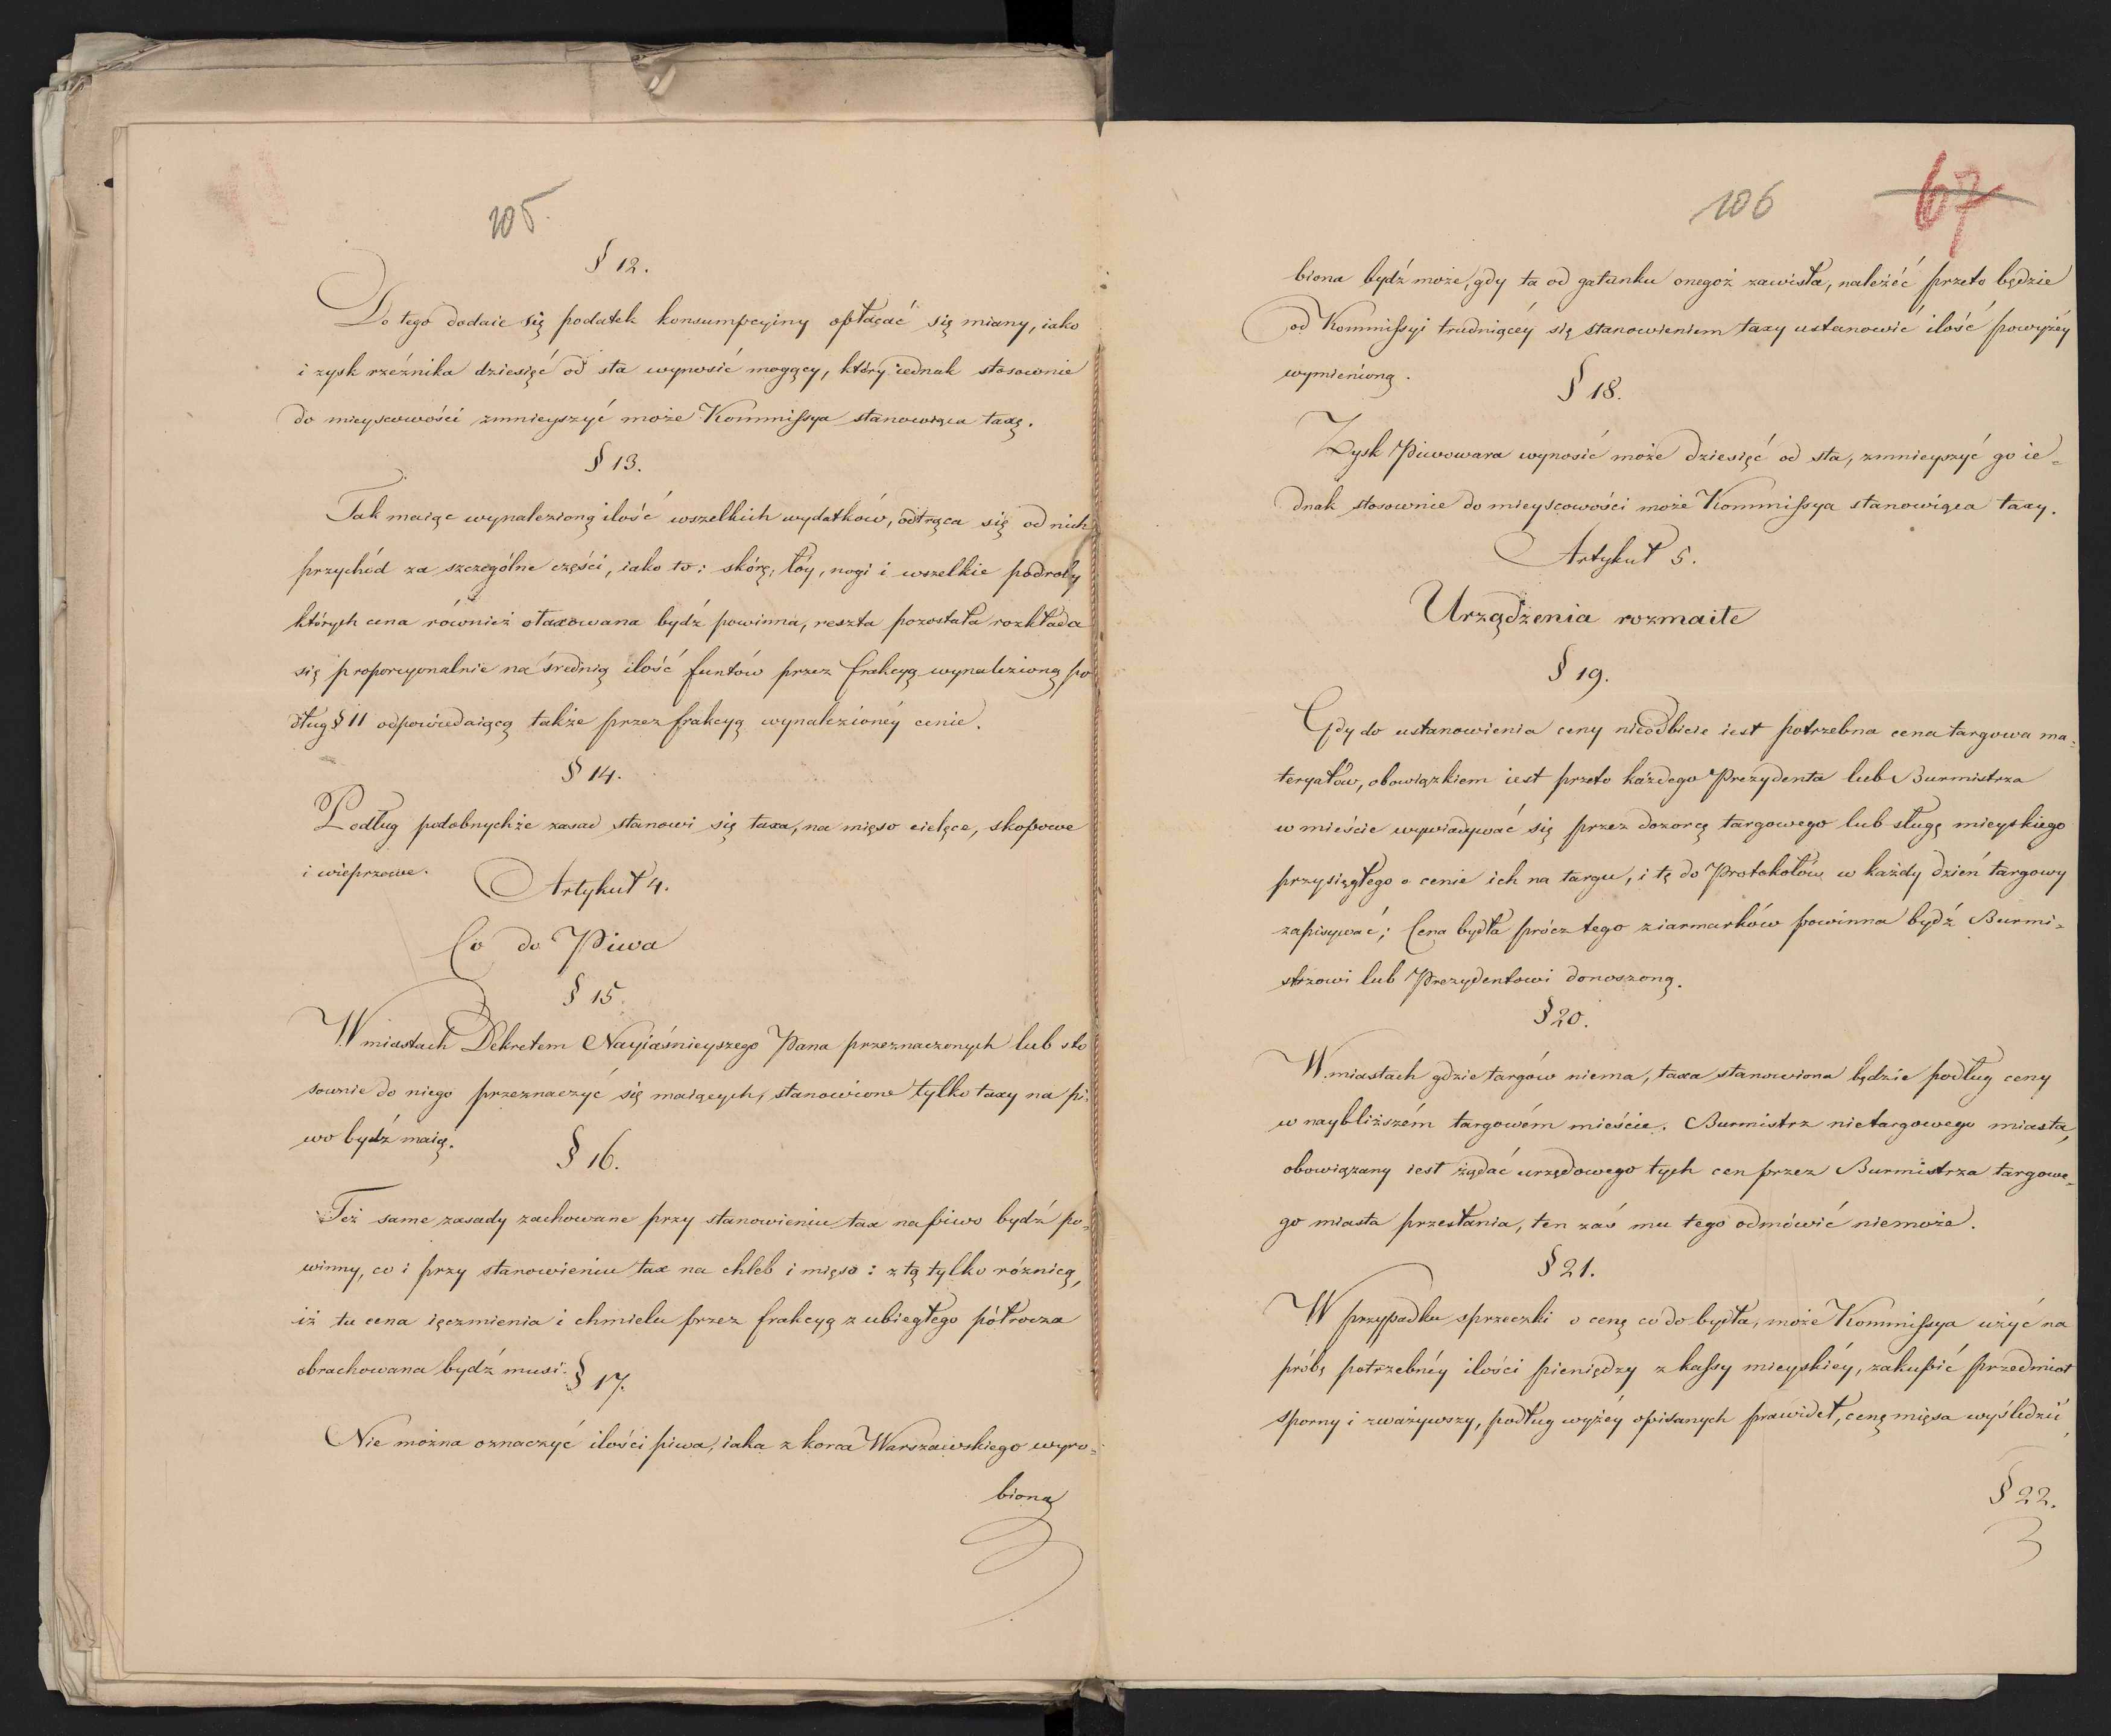 105.
§ 12.
Do tego dodaie się podatek konsumpcyiny opłacać się miany, iako
i zysk rzeźnika dziesięć od sta wynosić mogący, który iednak stosownie
do mieyscowości zmnieyszyć może Kommissya stanowiąca taxę.
§ 13.
Tak maiąc wynalezioną ilość wszelkich wydatków, odtrąca się od nich
przychód za szczególne części, iako to: skórę, łóy, nogi i wszelkie podroby
których cena również otaxowana bydź powinna, reszta pozostała rozkłada
się proporcyonalnie na średnią ilość funtów przez frakcyą wynalezioną po
dług § 11 odpowiedaiącą także przez frakcyą wynalezioney cenie.
§ 14.
Podług podobnychże zasad stanowi się taxa, na mięso cielęce, skopowe
i wieprzowe.
Artykuł 4.
Co do Piwa
§ 15.
W miastach Dekretem Nayiaśnieyszego Pana przeznaczonych lub sto
sownie do niego przeznaczyć się maiących, stanowione tylko taxy na pi-
wo bydź maią.
§ 16.
Też same zasady zachowane przy stanowieniu tax na piwo bydź po-
winny, co i przy stanowieniu tax na chleb i mięso: z tą tylko różnicą,
iż tu cena ięczmienia i chmielu przez frakcyą z ubiegłego półrocza
obrachowana bydź musi.
§ 17.
Nie można oznaczyć ilości piwa, iaka z korca Warszawskiego wyro-
bioną
106 67
biona bydź może, gdy ta od gatunku onegoż zawisła, należéć przeto będzie
od Kommissyi trudniącéy się stanowieniem taxy ustanowić ilość powyżéy
wymienioną.
§ 18.
Zysk Piwowara wynosić może dziesięć od sta, zmnieyszyć go ie-
dnak stosownie do mieyscowości może Kommissya stanowiąca taxy.
Artykuł 5.
Urządzenia rozmaite
§ 19.
Gdy do ustanowienia ceny nieodbicie iest potrzebna cena targowa ma-
teryałów, obowiązkiem iest przeto każdego Prezydenta lub Burmistrza
w mieście wywiadywać się przez dozorcę targowego lub sługę mieyskiego
przysięgłego o cenie ich na targu, i tę do Protokołów w każdy dzień targowy
zapisywać; Cena bydła prócz tego z iarmarków powinna bydź Burmi-
strzowi lub Prezydentowi donoszoną.
§ 20.
W miastach gdzie targów niema, taxa stanowiona będzie podług ceny
w naybliższém targowém mieście. Burmistrz nietargowego miasta,
obowiązany iest żądać urzędowego tych cen przez Burmistrza targowe-
go miasta przesłania, ten zaś mu tego odmówić niemoże.
§ 21.
W przypadku sprzeczki o cenę co do bydła, może Kommissya użyć na
próbę potrzebnéy ilości pieniędzy z kassy mieyskiéy, zakupić przedmiot
sporny i zważywszy, podług wyżéy opisanych prawideł, cenę mięsa wyśledzić,
§ 22.